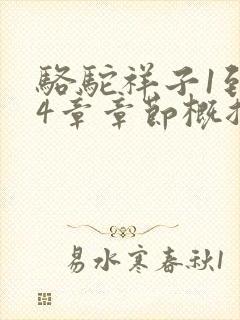 骆驼祥子1到
4章章节概括
易水寒春秋1